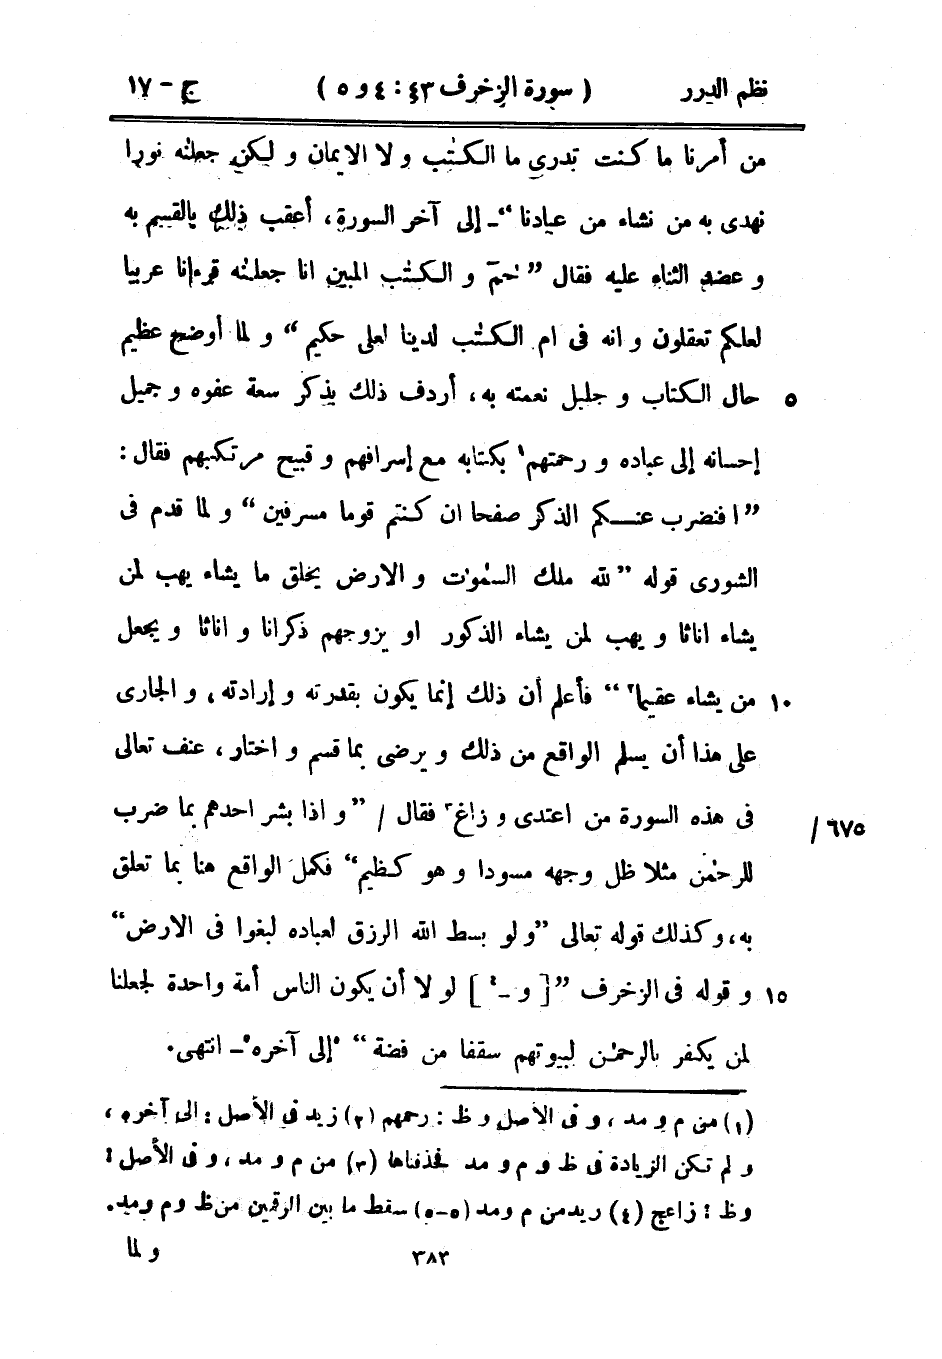 نظم الدرر ( سورة الزخرف ٤٣ : ٤ و ٥ ) ج - ١٧
من أمرنا ما كنت تدرى ما الكتٰب و لا الايمان و لكن جعلنٰه نورا
نهدى به من نشاء من عبادنا “ـ إلى آخر السورة، أعقب ذلك بالقسم به
و عضد الثناء عليه فقال ” حٰمٓ و الكتٰب المبين انا جعلنٰه قرءانا عربيا
لعلكم تعقلون و انه فى ام الكتٰب لدينا لعلى حكيم “ و لما أوضح عظيم
٥ حال الكتاب و جليل نعمته به، أردف ذلك بذكر سعة عفوه و جميل
إحسانه إلى عباده و رحمتهم١ بكتابه مع إسرافهم و قبيح مرتكبهم فقال :
” ا فنضرب عنكم الذكر صفحا ان كنتم قوما مسرفين “ و لما قدم فى
الشورى قوله ” لله ملك السمٰوٰت و الارض يخلق ما يشاء يهب لمن
يشاء اناثا و يهب لمن يشاء الذكور او يزوجهم ذكرانا و اناثا و يجعل
١٠ من يشاء عقيما٢ “ فأعلم أن ذلك إنما يكون بقدرته و إرادته، و الجارى
على هذا أن يسلم الواقع من ذلك و يرضى بما قسم و اختار، عنف تعالى
فى هذه السورة من اعتدى و زاغ٣ فقال / ” و اذا بشر احدهم بما ضرب / ٦٧٥
للرحمٰن مثلا ظل وجهه مسودا و هو كظيم “ فكمل الواقع هنا بما تعلق
به، وكذلك قوله تعالى ”و لو بسط الله الرزق لعباده لبغوا فى الارض“
١٥ و قوله فى الزخرف ” [ و ـ٤ ] لو لا أن يكون الناس أمة واحدة لجعلنا
لمن يكفر بالرحمٰن لبيوتهم سقفا من فضة “ ٥إلى آخره٥ـ انتهى.
(١) من م و مد ، و فى الأصل و ظ : رحمهم (٢) زيد فى الأصل : الى آخره ،
و لم تكن الزيادة فى ظ و م و مد فحذفناها (٣) من م و مد ، و فى الأصل :
و ظ : زاعج (٤) زيد من م و مد (٥-٥) سقط ما بين الرقمين من ظ و م و مد.
٣٨٢ و لما